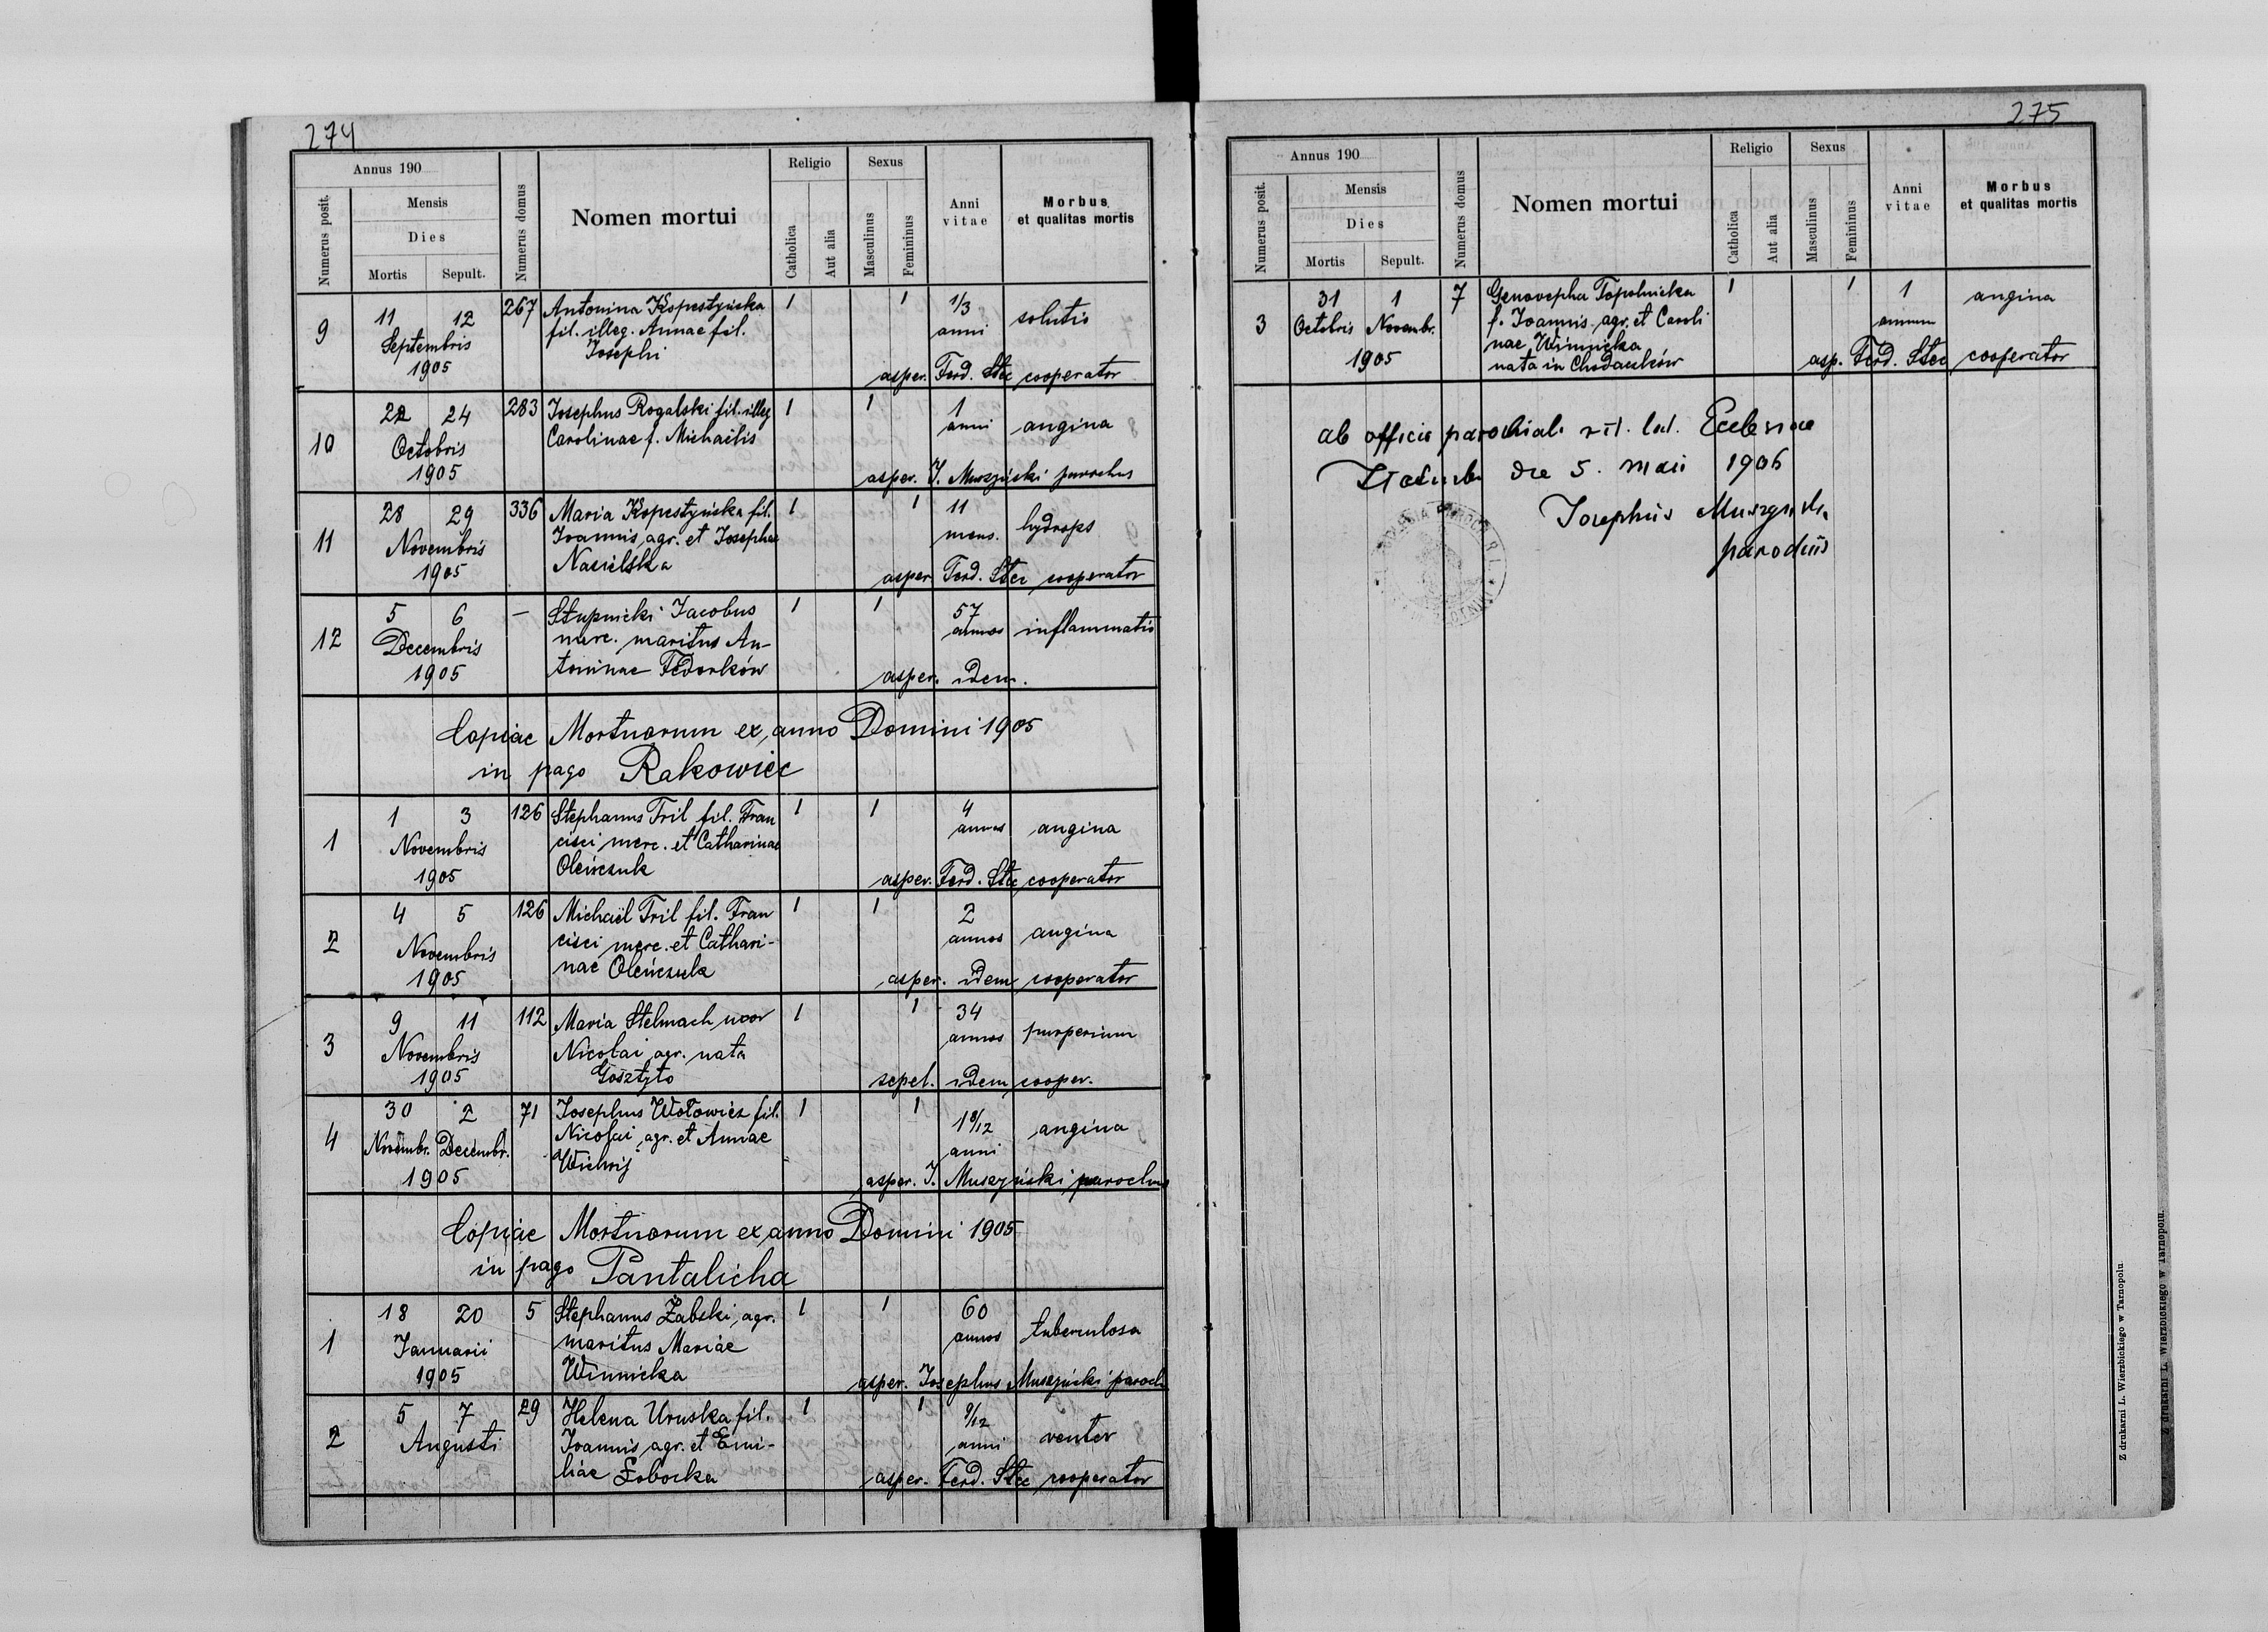 274
Annus 190
Numerus posit.
Mensis
Dies
Mortis Sepult.
Numerus domus
Nomen mortui
Religio
Catholica
Aut alia
Sexus
Masculinus
Femininus
Anni vitae
Morbus
et qualitas mortis
9 11 12 267 Antonina Kopestyńska 1 1 1/3 solutio
Septembris fil. illeg. Annae fil. anni
1905 Josephi asper. Ferd. Stec cooperator
10 22 24 283 Josephus Rogalski fil. illeg 1 1 1 angina
Octobris Carolinae f. Michaëlis anni
1905 asper. J. Muszyński parochus
11 28 29 336 Maria Kopestyńska fil. 1 1 11 hydrops
Novembris Joannis, agr. et Josepha mens.
1905 Nasielska asper Ferd. Stec cooperator
12 5 6 — Stupnicki Jacobus 1 1 57 inflammatio
Decembris merc. maritus An- annos
1905 toninae Fedorków asper. idem.
Copiae Mortuorum ex anno Domini 1905
in pago Rakowiec
1 1 3 126 Stephanus Tril fil. Fran 1 1 4 angina
Novembris cisci merc. et Catharinae annos
1905 Oleńczuk asper. Ferd. Stec cooperator
2 4 5 126 Michaël Tril fil. Fran 1 1 2 angina
Novembris cisci merc. et Cathari- annos
1905 nae Oleńczuk asper. idem cooperator
3 9 11 112 Maria Stelmach uxor 1 1 34 purperium
Novembris Nicolai agr. nata annos
1905 Gosztyto sepel. idem cooper.
4 30 2 71 Josephus Wołowicz fil. 1 1 1 8/12 angina
Novembr. Decembr. Nicolai, agr. et Annae anni
1905 Wichrij asper. J. Muszyński parochus
Copiae Mortuorum ex anno Domini 1905
in pago Pantalicha
1 18 20 5 Stephanus Żabski, agr. 1 1 60 tuberculosa
Januarii maritus Mariae annos
1905 Winnicka asper. Josephus Muszyński paroch
2 5 7 29 Helena Uruska fil. 1 1 9/12 venter
Augusti Joannis, agr. et Emi- anni
liae Łobocka asper. Ferd. Stec cooperator
275
Annus 190
Numerus posit.
Mensis
Dies
Mortis Sepult.
Numerus domus
Nomen mortui
Religio
Catholica
Aut alia
Sexus
Masculinus
Femininus
Anni vitae
Morbus
et qualitas mortis
3 31 1 7 Genovepha Topolnicka 1 1 1 angina
Octobris Novembr. f. Joannis, agr. et Caroli annum
1905 nae Winnicka
nata in Chodaczków asp. Ferd. Stec cooperator
ab officio parochiali rit. lat. Ecclesiae
die 5. maii 1906
Josephus Muszyński
parochus
Z drukarni L. Wierzbickiego w Tarnopolu
Z drukarni L. Wierzbickiego w Tarnopolu.